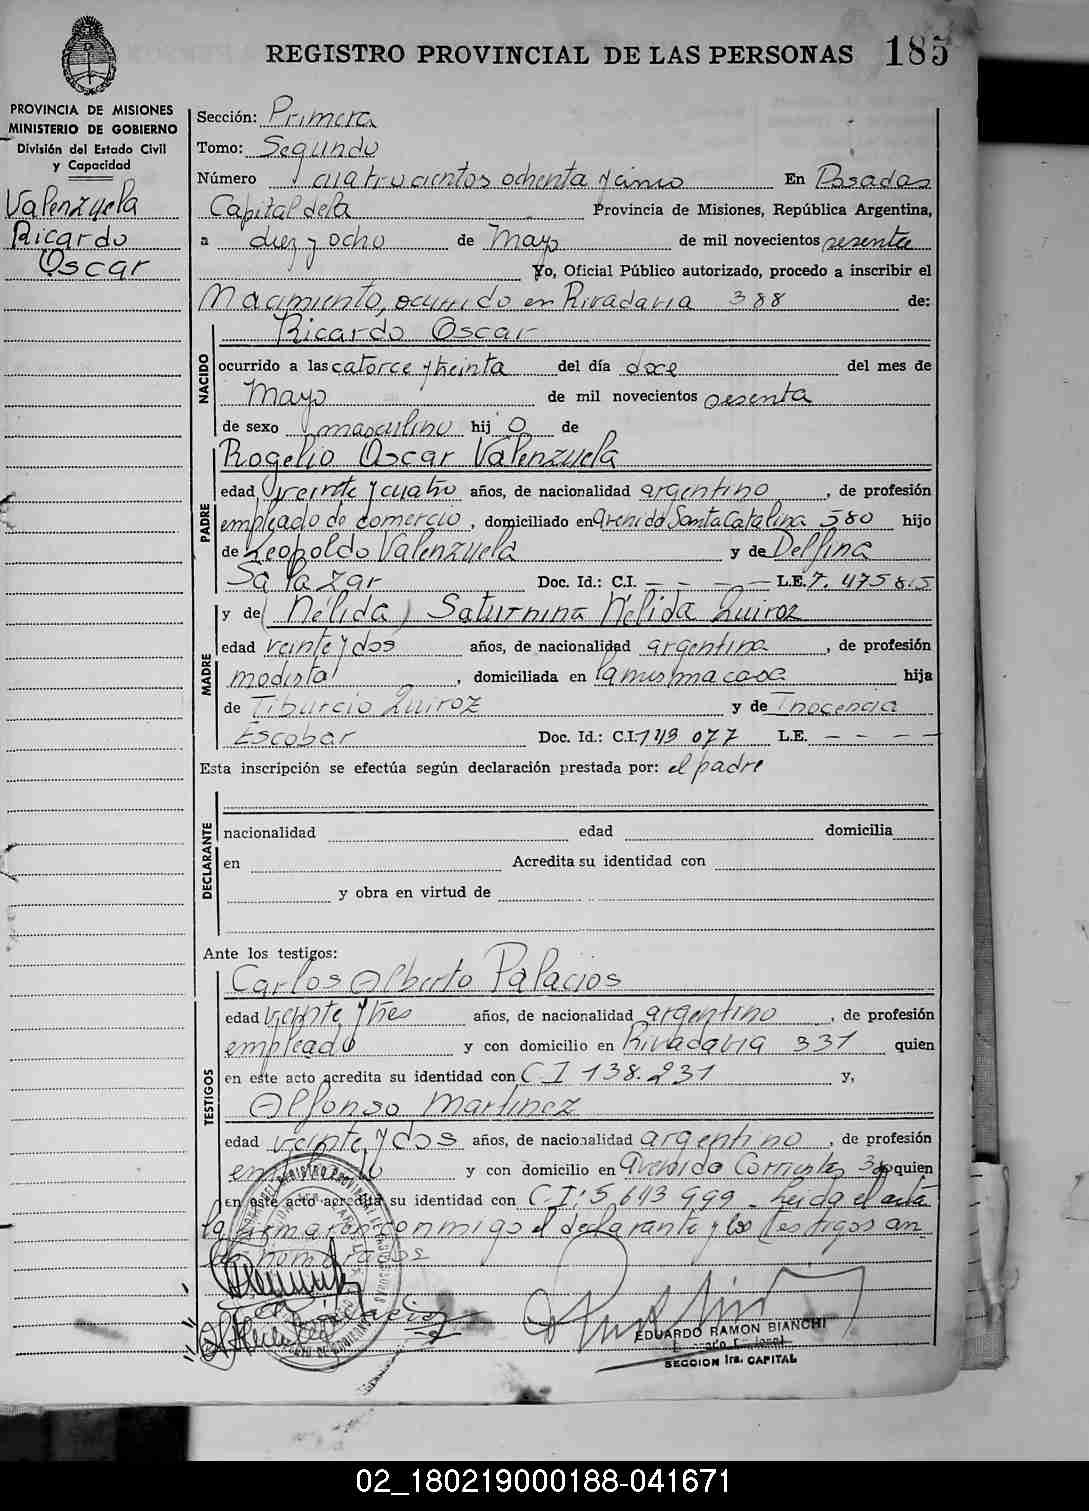 REGISTRO PROVINCIAL DE LAS PERSONAS 185
PROVINCIA DE MISIONES
MINISTERIO DE GOBIERNO
División del Estado Civil
y Capacidad
Valenzuela
Ricardo
Oscar
Sección: Primera
Tomo: Segundo
Número cuatrocientos ochenta y cinco En Posadas
Capital de la Provincia de Misiones, República Argentina,
a diez y ocho de Mayo de mil novecientos sesenta
Yo, Oficial Público autorizado, procedo a inscribir el
Nacimiento, ocurrido en Rivadavia 388 de:
NACIDO
Ricardo Oscar
ocurrido a las catorce y treinta del día doce del mes de
Mayo de mil novecientos sesenta
de sexo masculino hij o de
PADRE
Rogelio Oscar Valenzuela
edad veinte y cuatro años, de nacionalidad argentino, de profesión
empleado de comercio, domiciliado en Avenida Santa Catalina 580 hijo
de Leopoldo Valenzuela y de Delfina
Salazar Doc. Id.: C.I. — — — — L.E. 7.475815
MADRE
y de (Nélida) Saturnina Nélida Quiroz
edad veinte y dos años, de nacionalidad argentina, de profesión
modista, domiciliada en la misma casa hija
de Tiburcio Quiroz y de Inocencia
Escobar Doc. Id.: C.I. 143 077 L.E. — — — —
Esta inscripción se efectúa según declaración prestada por: el padre
DECLARANTE
nacionalidad edad domicilia
en Acredita su identidad con
y obra en virtud de
Ante los testigos:
TESTIGOS
Carlos Alberto Palacios
edad veinte y tres años, de nacionalidad argentino, de profesión
empleado y con domicilio en Rivadavia 331 quien
en este acto acredita su identidad con C I 138.231 y,
Alfonso Martinez
edad veinte y dos años, de nacionalidad argentino, de profesión
empleado y con domicilio en Avenida Corrientes quien
en este acto acredita su identidad con C.I: 5.643 999 - Leida el acta
la firmaron conmigo el declarante y los testigos an
tes nombrados
EDUARDO RAMON BIANCHI
SECCION Ira. CAPITAL
02_180219000188-041671